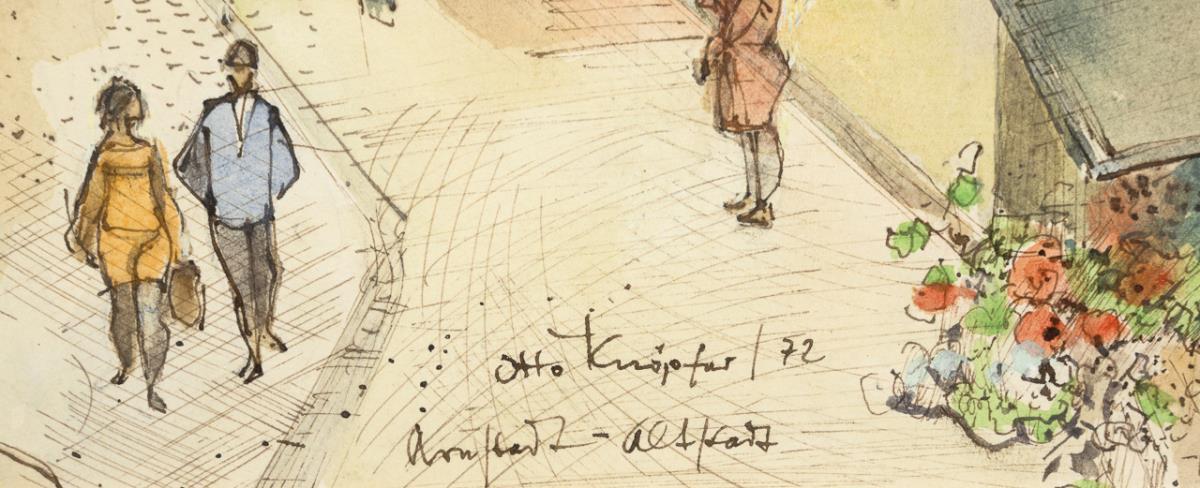 Otto Knöpfer / 72
Arnstadt - Altstadt